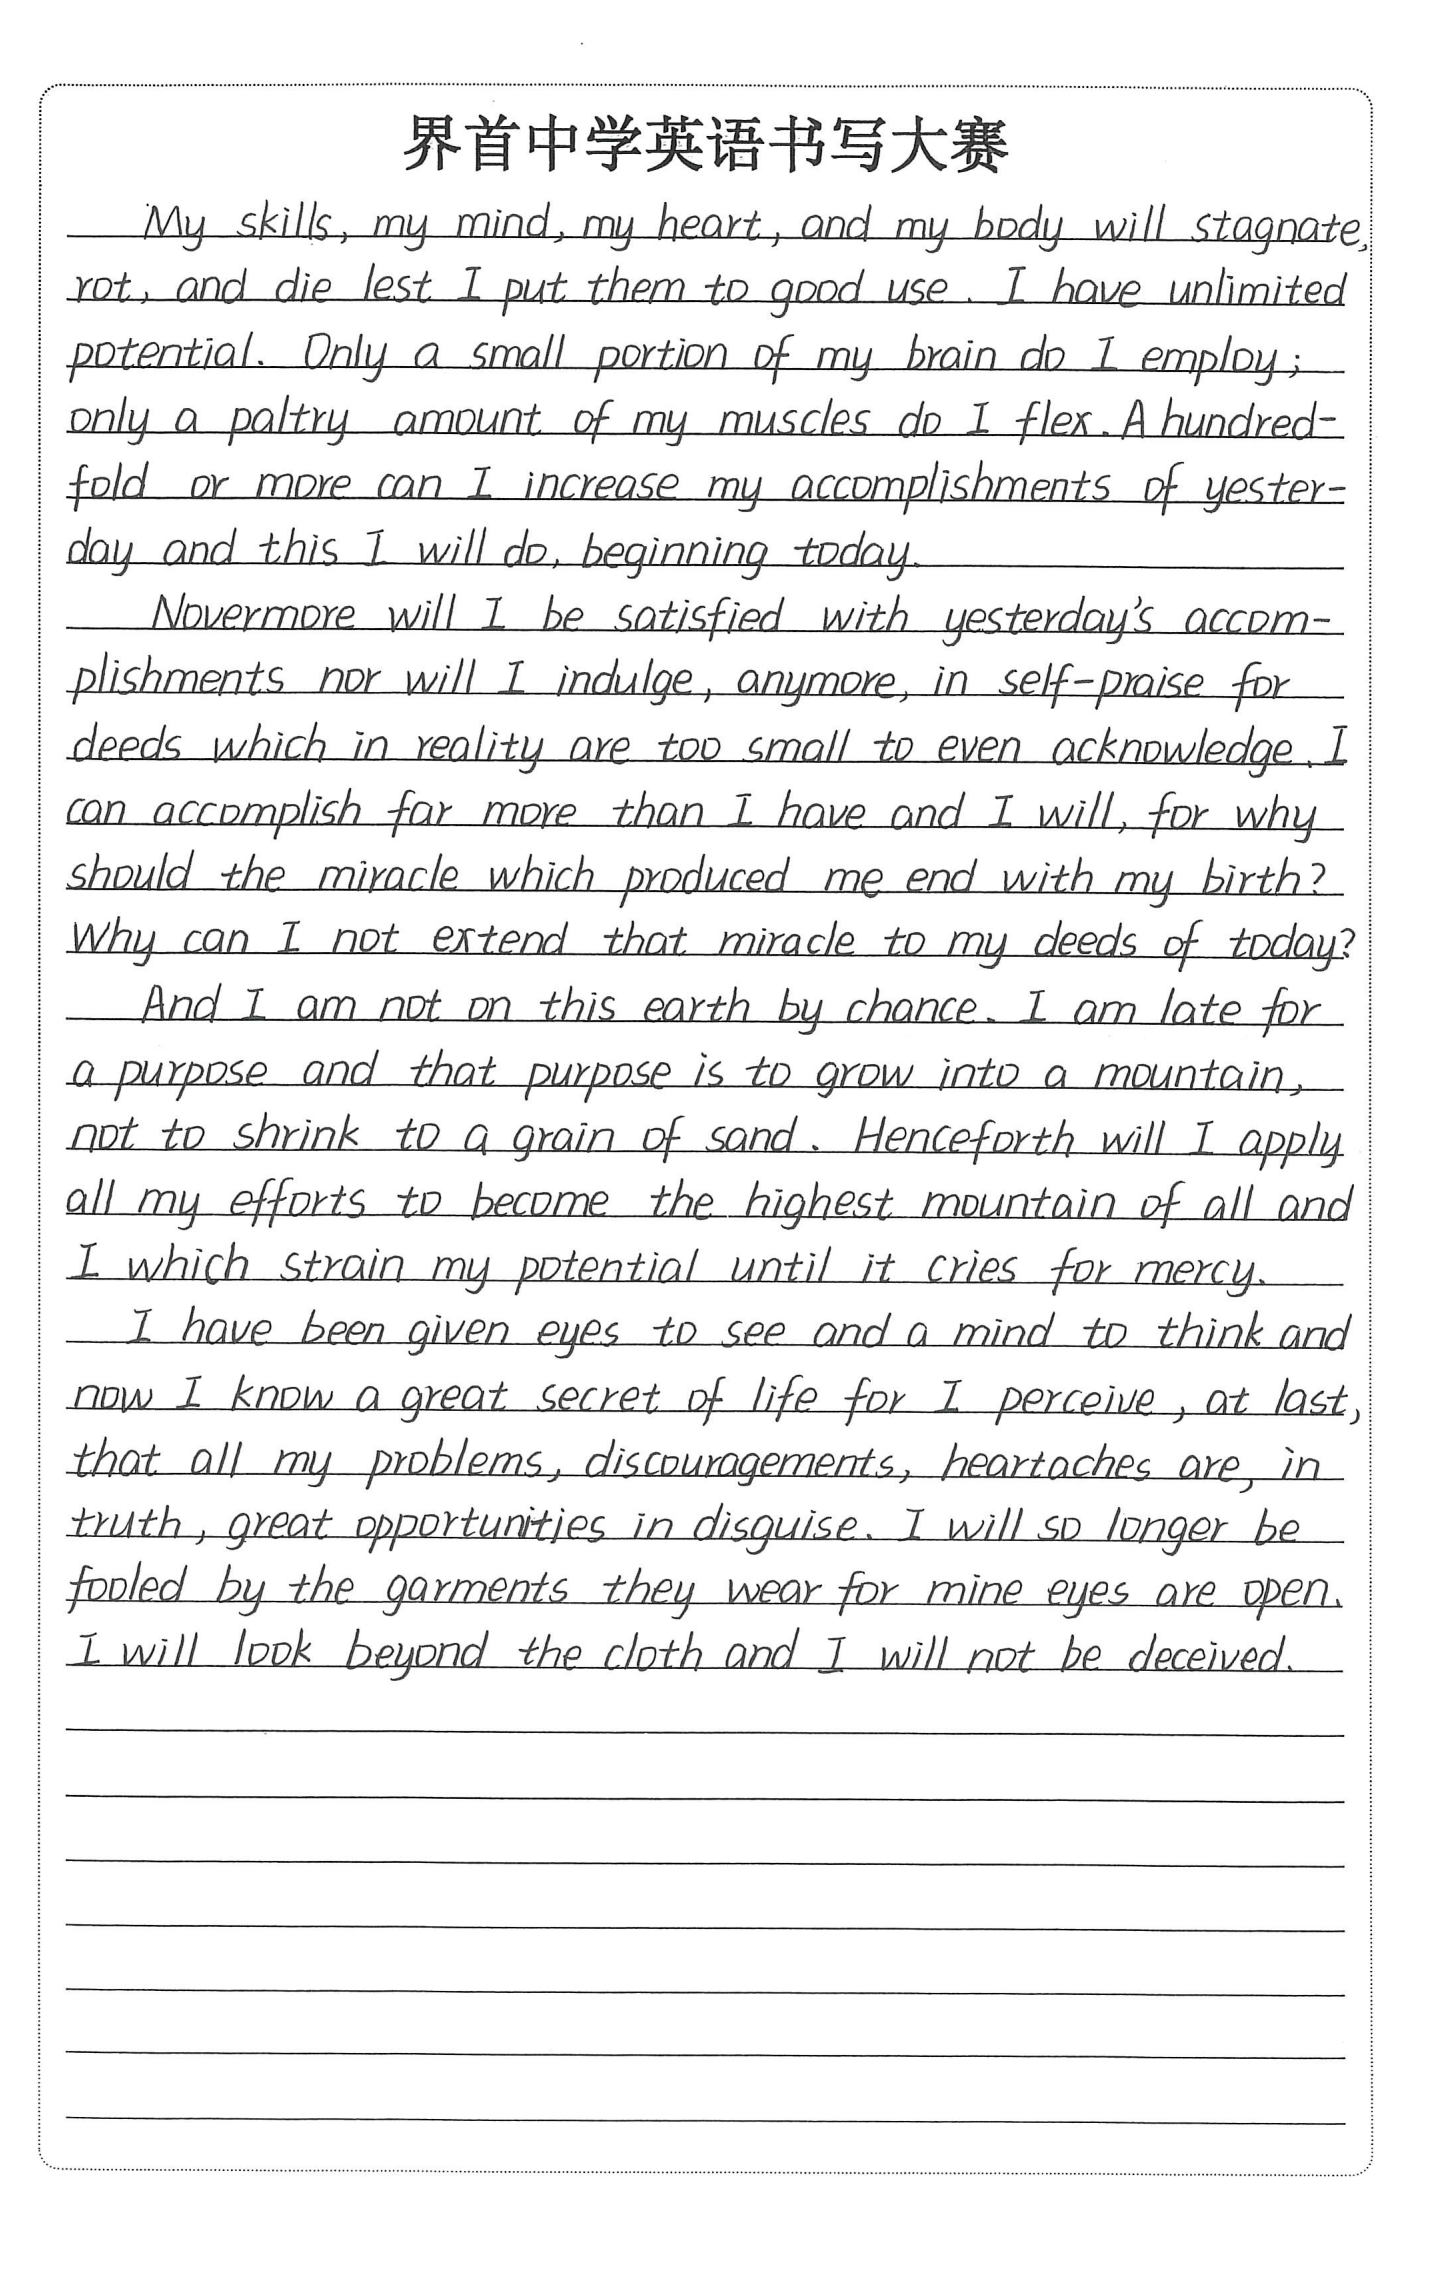 界首中学英语书写大赛
My skills, my mind, my heart, and my body will stagnate,
rot, and die lest I put them to good use. I have unlimited
potential. Only a small portion of my brain do I employ;
only a paltry amount of my muscles do I flex. A hundred-
fold or more can I increase my accomplishments of yester-
day and this I will do, beginning today.
Novermore will I be satisfied with yesterday's accom-
plishments nor will I indulge, anymore, in self-praise for
deeds which in reality are too small to even acknowledge. I
can accomplish far more than I have and I will, for why
should the miracle which produced me end with my birth?
Why can I not extend that miracle to my deeds of today?
And I am not on this earth by chance. I am late for
a purpose and that purpose is to grow into a mountain,
not to shrink to a grain of sand. Henceforth will I apply
all my efforts to become the highest mountain of all and
I which strain my potential until it cries for mercy.
I have been given eyes to see and a mind to think and
now I know a great secret of life for I perceive, at last,
that all my problems, discouragements, heartaches are, in
truth, great opportunities in disguise. I will so longer be
fooled by the garments they wear for mine eyes are open.
I will look beyond the cloth and I will not be deceived.